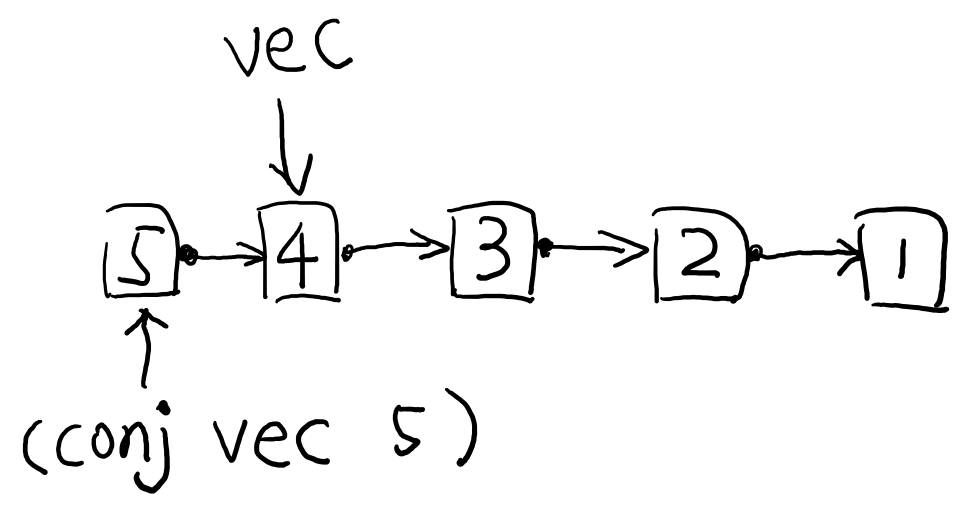 vec
5 4 3 2 1
(conj vec 5)